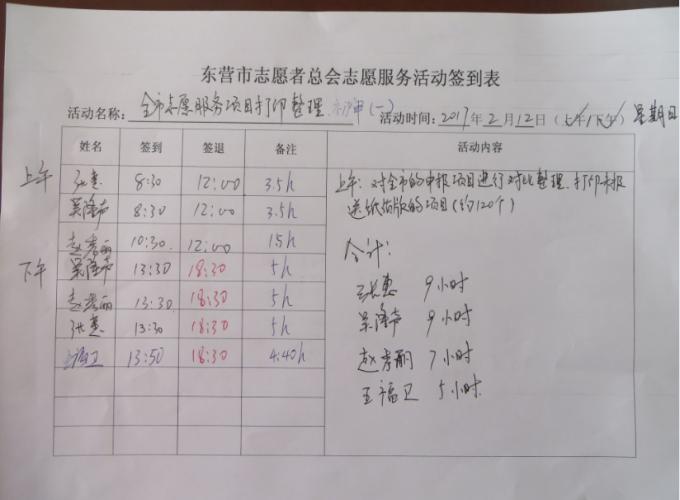 东营市志愿者总会志愿服务活动签到表
活动名称: 全市志愿服务项目打印整理 (一) 活动时间: 2017年2月12日 (上午/下午) 星期日
姓名 签到 签退 备注 活动内容
上午 张惠 8:30 12:00 3.5h 上午: 对全市的申报项目进行对比整理、打印未报
吴泽芦 8:30 12:00 3.5h 送纸质版的项目(约120个)
赵孝丽 10:30 12:00 15h 合计:
下午 吴泽芦 13:30 18:30 5h
赵孝丽 13:30 18:30 5h 张惠 9小时
张惠 13:30 18:30 5h 吴泽芦 9小时
13:50 18:30 4:40h 赵孝丽 7小时
王福卫 5小时